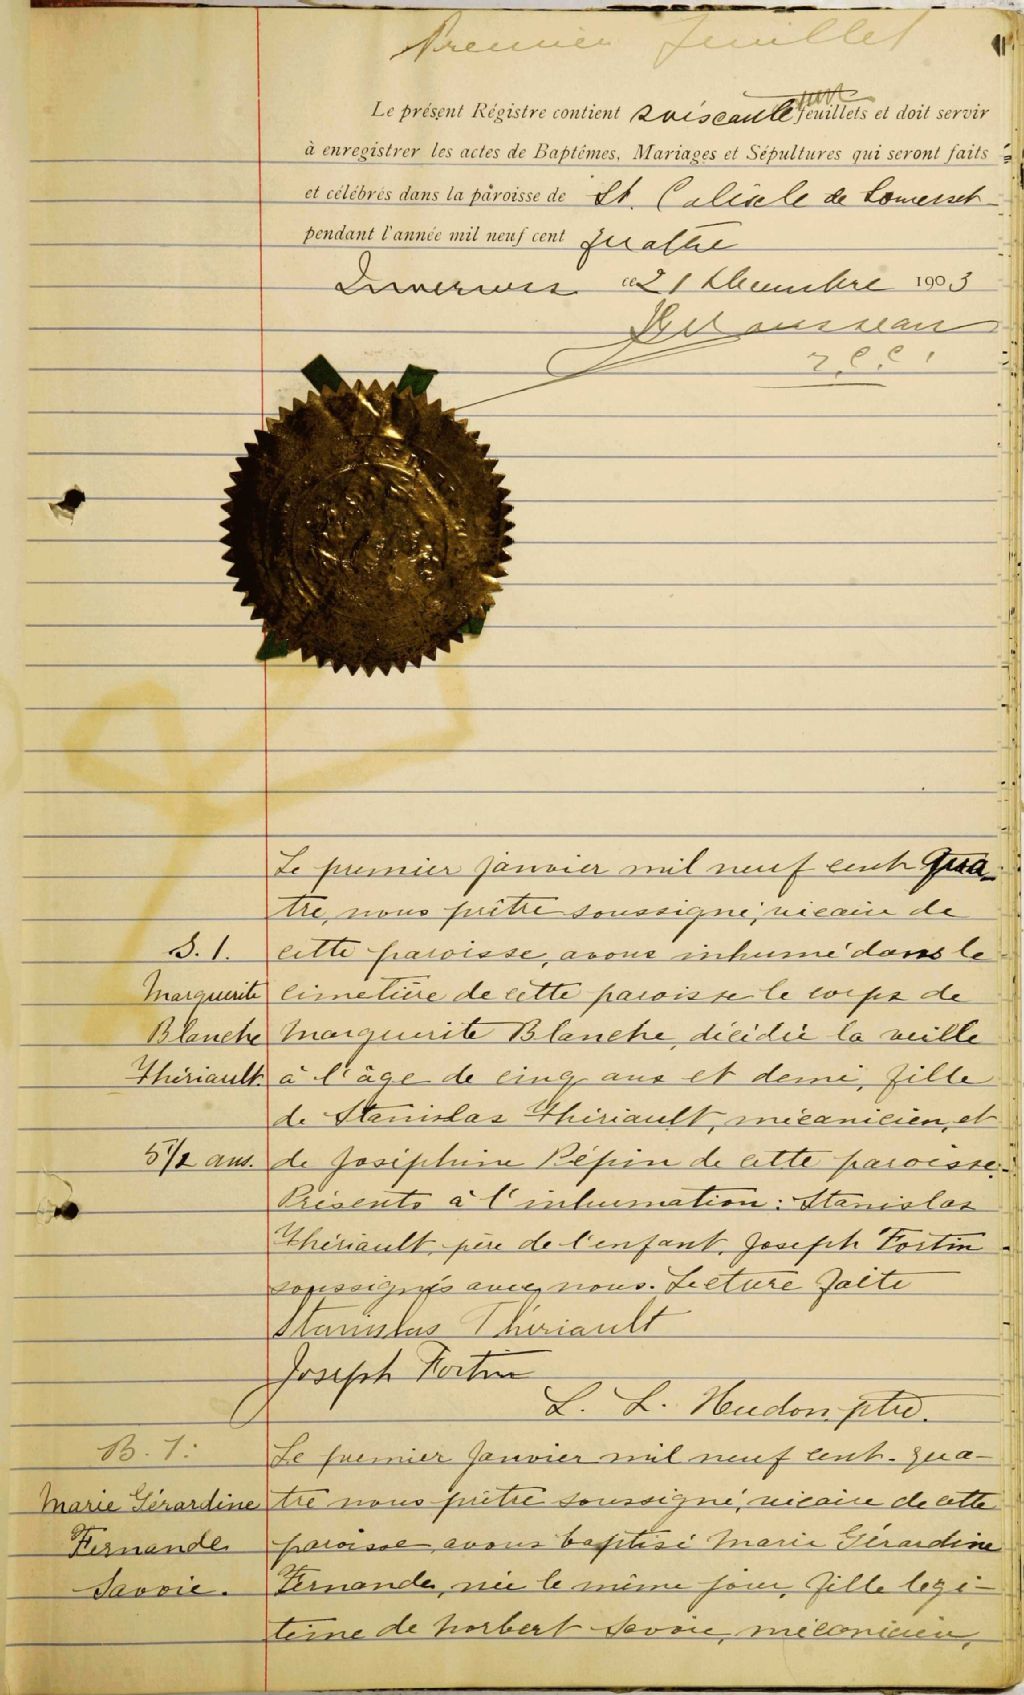 Premier feuillet
Le présent Régistre contient soiscante un feuillets et doit servir
à enregistrer les actes de Baptêmes, Mariages et Sépultures qui seront faits
et célébrés dans la pâroisse de St. Calixte de Somerset
pendant l'année mil neuf cent quatre
Inverness ce 21 Décembre 1903
Rousseau
Le premier janvier mil neuf cent qua-
tre, nous prêtre soussigné, vicaire de
S. 1. cette paroisse, avons inhumé dans le
Marguerite cimetière de cette paroisse le corps de
Blanche Marguerite Blanche, décédée la veille
Thériault. à l'âge de cinq ans et demi, fille
de Stanislas Thériault, mécanicien, et
5 1/2 ans. de Joséphine Pépin de cette paroisse.
Présents à l'inhumation: Stanislas
Thériault, père de l'enfant, Joseph Fortin
soussignés avec nous. Lecture faite
Stanislas Thériault
Joseph Fortin
L. L. Hudon, ptre.
B. 1: Le premier janvier mil neuf cent-qua-
Marie Gérardine tre nous prêtre soussigné, vicaire de cette
Fernande paroisse, avons baptisé Marie Gérardine
Savoie. Fernande, née le même jour, fille légi-
time de Norbert Savoie, mécanicien,